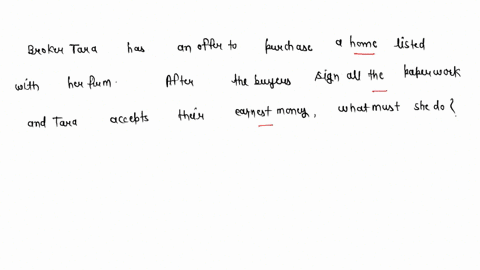 Broker Tara has an offer to purchase a home listed
with her firm. After the buyers sign all the paperwork
and Tara accepts their earnest money, what must she do?